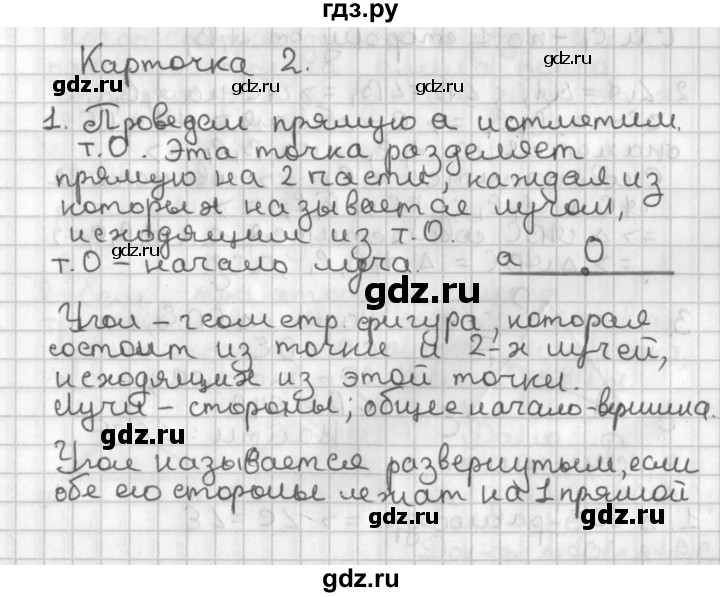 гдз.ру
Карточка 2.
gdz.ru gdz.ru gdz.ru
1. Проведем прямую а и отметим.
т.О. Эта точка разделяет
gdz.ru gdz.ru
прямую на 2 части, каждая из
которых называется лучом,
исходящим из т.О.
gdz.ru gdz.ru
т.О – начало луча. а О
gdz.ru
Угол – геометр. фигура, которая
состоит из точки и 2-х лучей,
исходящих из этой точки.
gdz.ru gdz.ru
Лучи – стороны; общее начало-вершина.
gdz.ru
Угол называется развернутым, если
обе его стороны лежат на 1 прямой
gdz.ru gdz.ru
gdz.ru